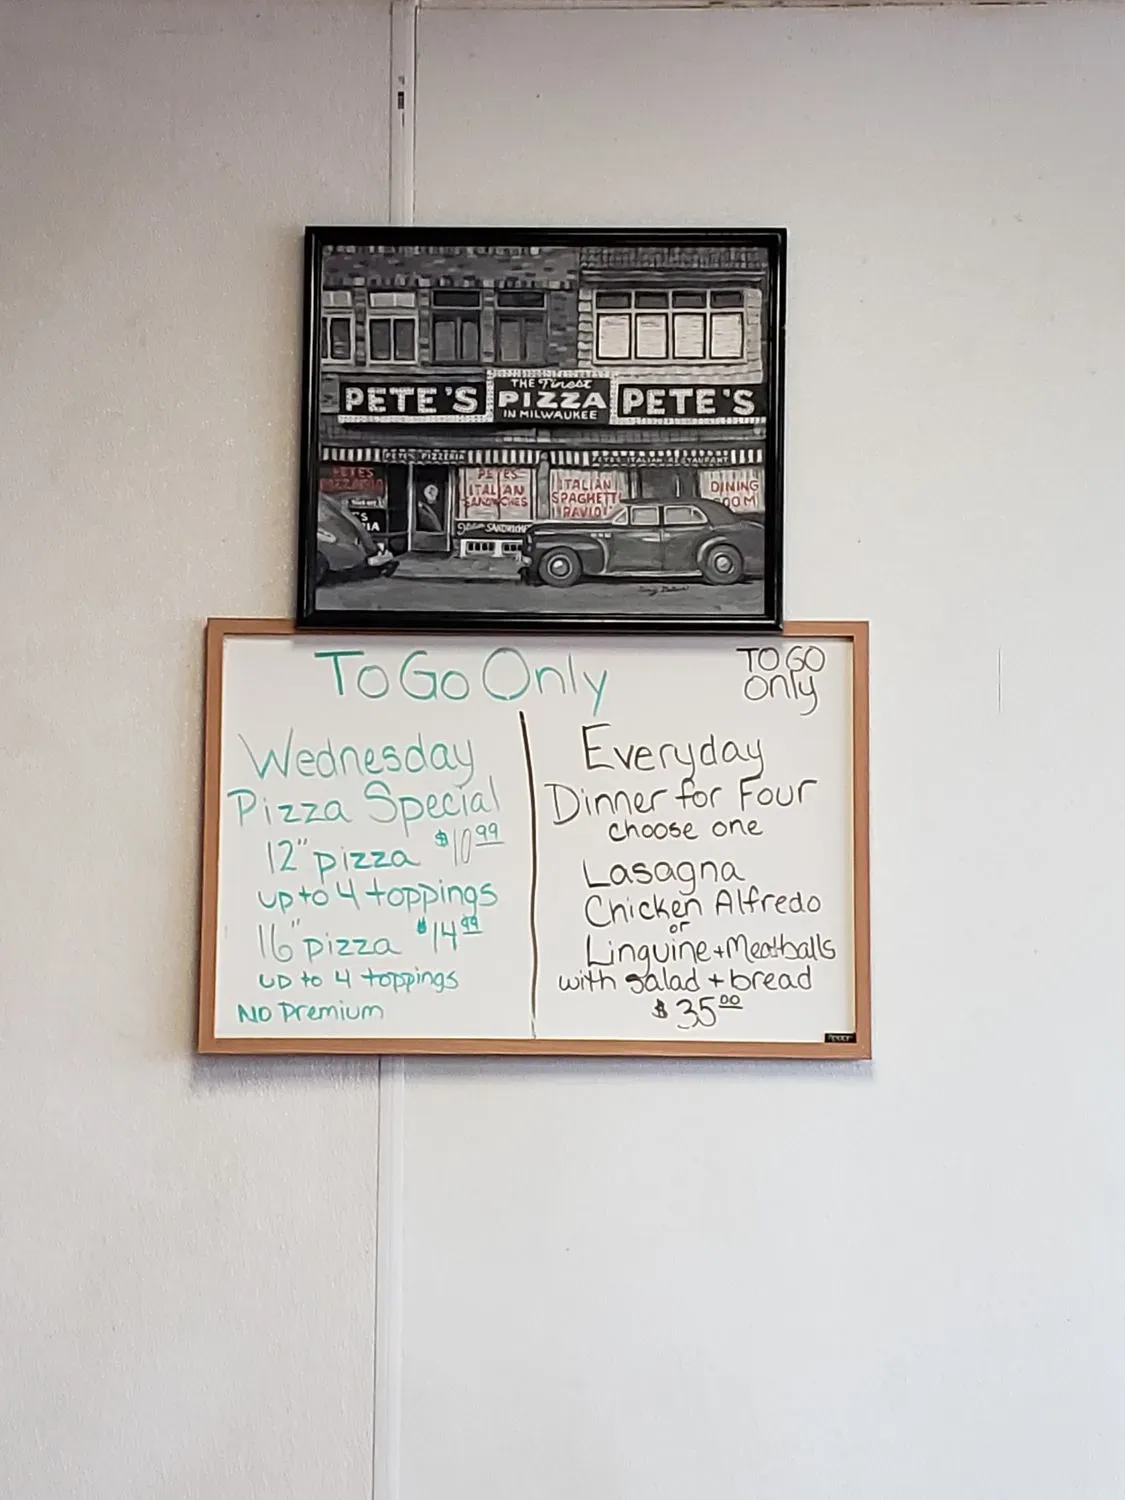 PETE'S
THE Finest
PIZZA
IN MILWAUKEE
PETE'S
PETE'S PIZZERIA
PETE'S ITALIAN RESTAURANT
PETE'S
PIZZARIA
PETE'S
ITALIAN
SANDWICHES
ITALIAN
SPAGHETTI
RAVIOLI
DINING
ROOM
SANDWICHES
To Go Only
Wednesday
Pizza Special
12" pizza $10.99
up to 4 toppings
16" pizza $14.99
up to 4 toppings
No Premium
TO GO
only
Everyday
Dinner for Four
choose one
Lasagna
Chicken Alfredo
or
Linguine + Meatballs
with salad + bread
$35.00